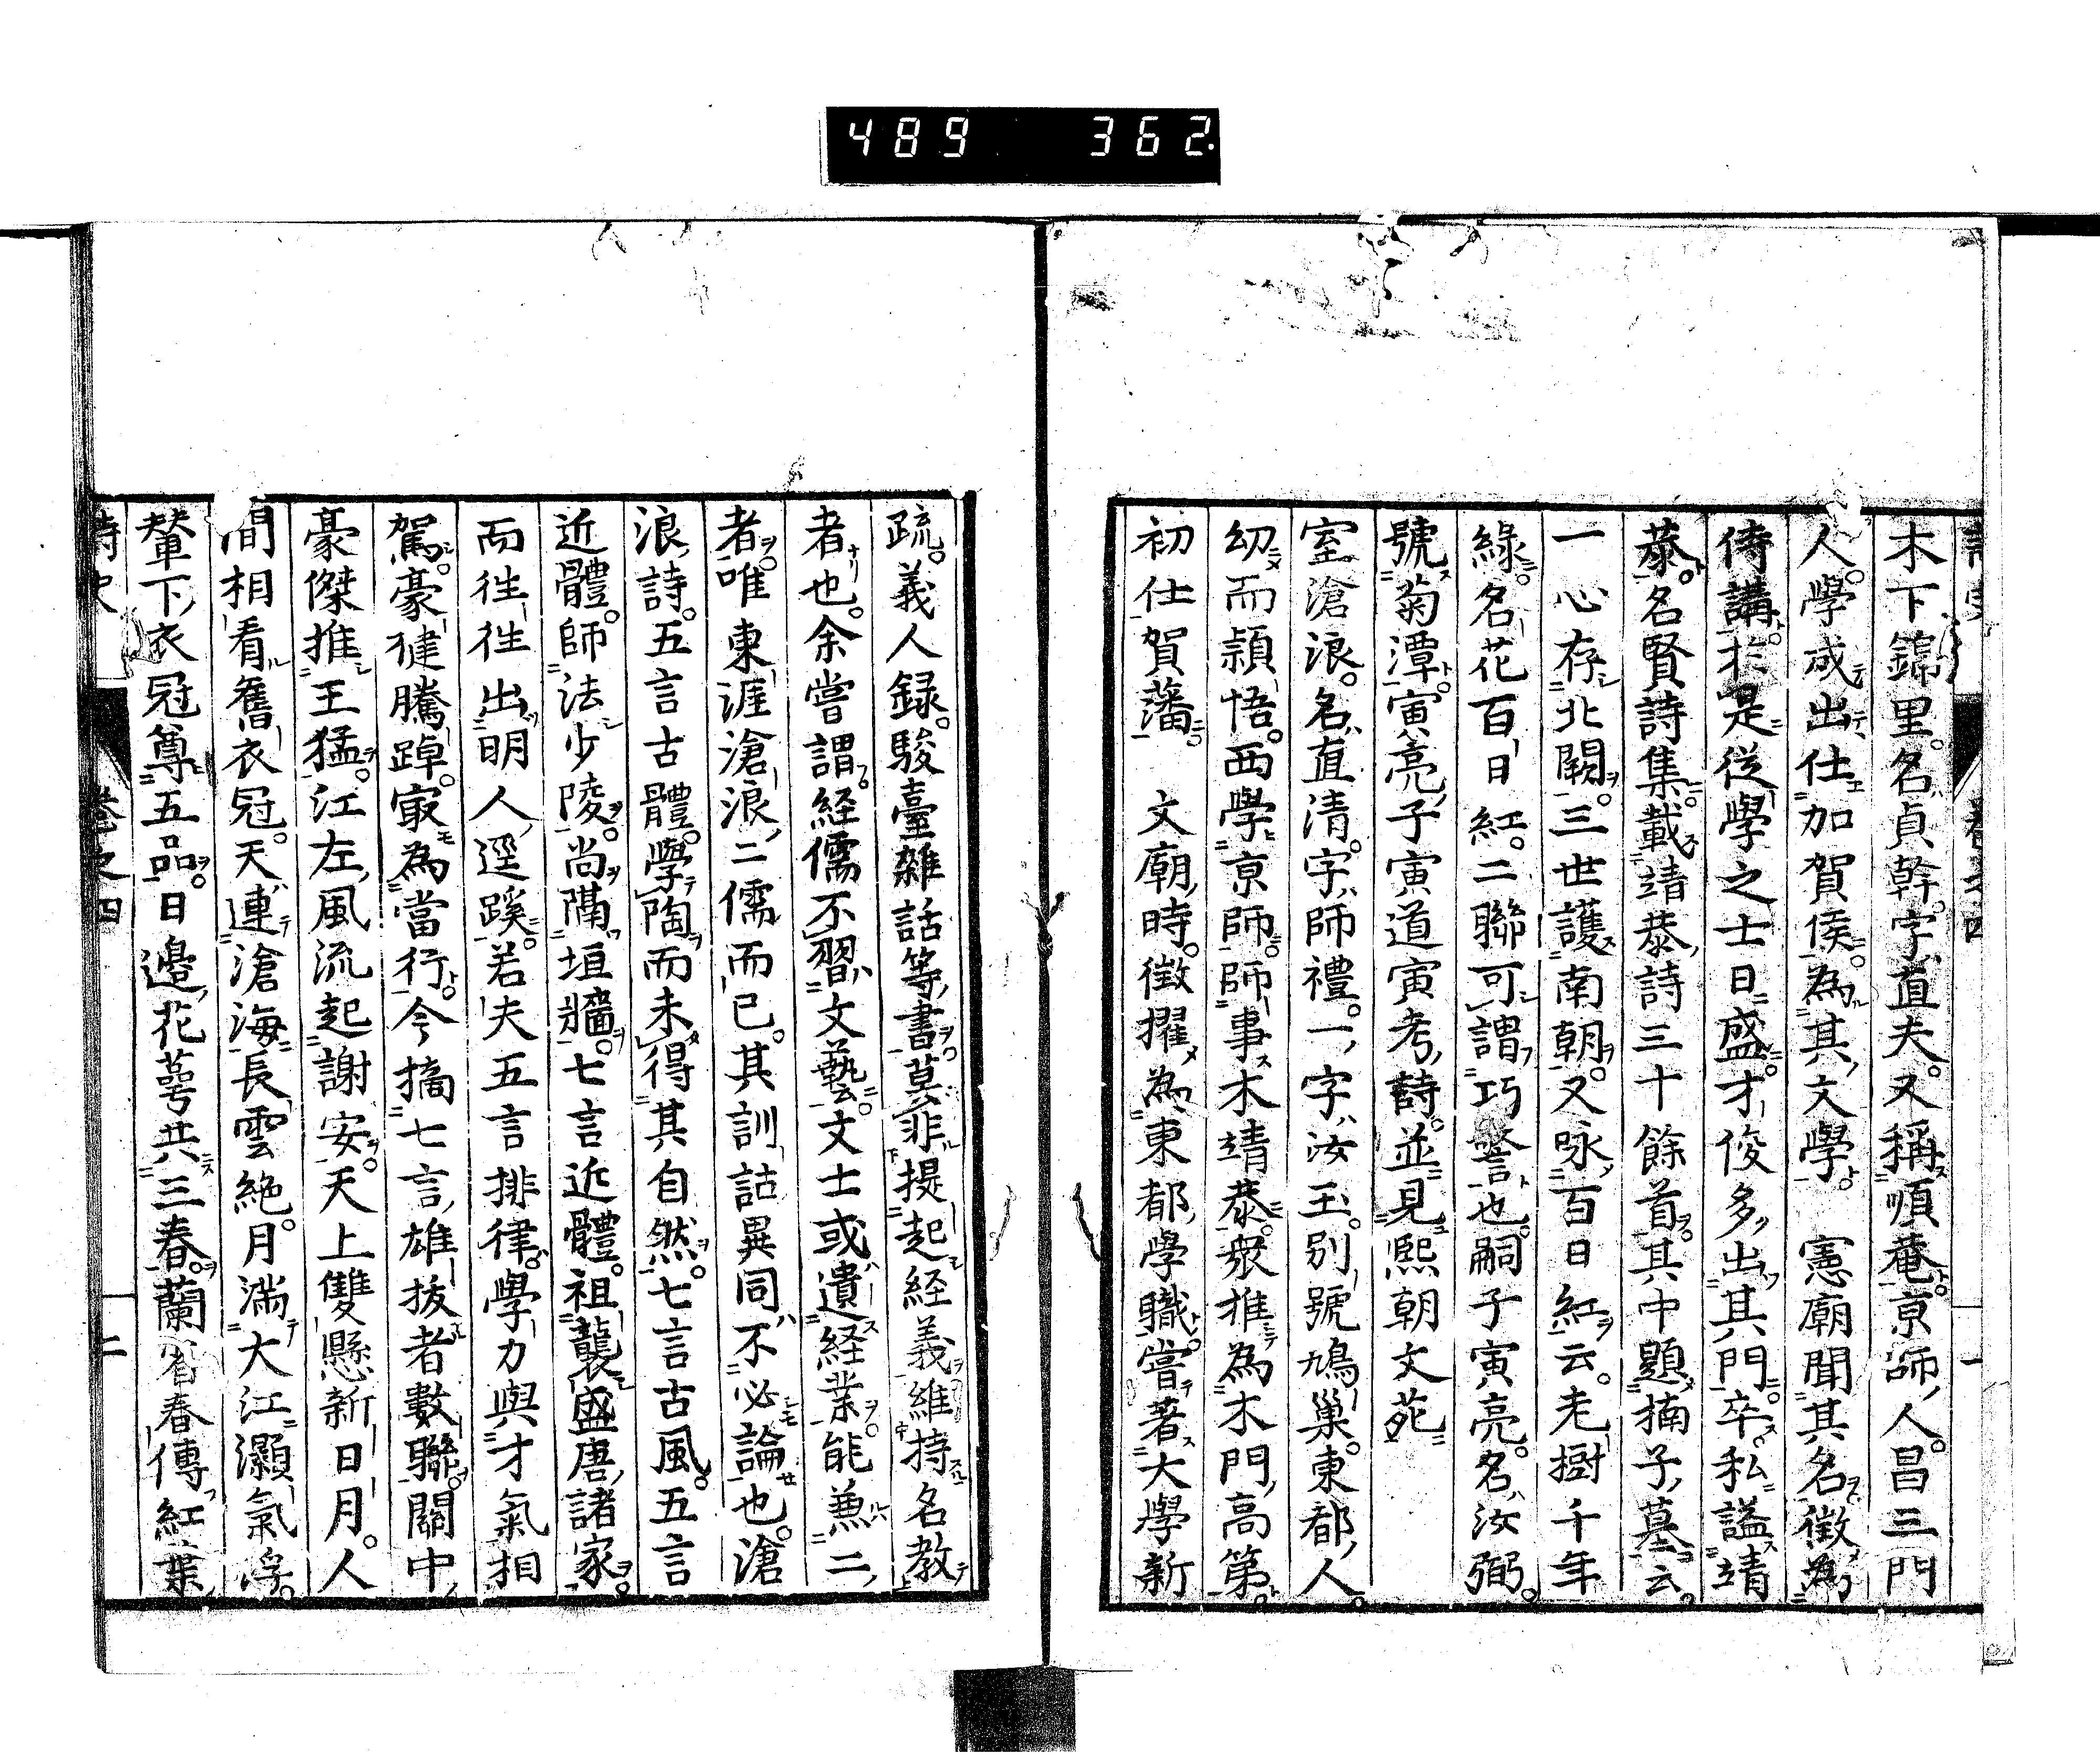 489 362
木下錦里。名貞幹。字直夫。又稱順菴。京師人。昌三門
人。學成出仕加賀侯。為其文學。 憲廟聞其名。徵為
侍講。於是從學之士日盛。才俊多出其門。卒。私謚靖
恭。名賢詩集。載靖恭詩三十餘首。其中題楠子墓云。
一心存北闕。三世護南朝。又咏百日紅云。老樹千年
綠。名花百日紅。二聯可謂巧警也。嗣子寅亮。名汝弼。
號菊潭。寅亮子寅道寅考。詩並見熙朝文苑
室滄浪。名直清。字師禮。一字汝玉。別號鳩巢。東都人。
幼而頴悟。西學京師。師事木靖恭。衆推為木門高第。
初仕賀藩 文廟時。徵擢為東都學職。嘗著大學新
疏。義人録。駿臺雜話等書。莫非提起経義維持名教
者也。余嘗謂。経儒不習文藝。文士或遺経業。能兼二
者。唯東涯滄浪二儒而已。其訓詁異同不必論也。滄
浪詩。五言古體。學陶而未得其自然。七言古風。五言
近體。師法少陵。尚隔垣牆。七言近體。祖襲盛唐諸家。
而徃徃出明人逕蹊。若夫五言排律。學力與才氣相
駕。豪健騰踔。冣為當行。今摘七言雄拔者數聯。關中
豪傑推王猛。江左風流起謝安。天上雙懸新日月。人
間相看舊衣冠。天連滄海長雲絶。月満大江灝氣浮。
輦下衣冠尊五品。日邊花萼共三春。蘭省春傳紅葉
詩史 卷之四 二